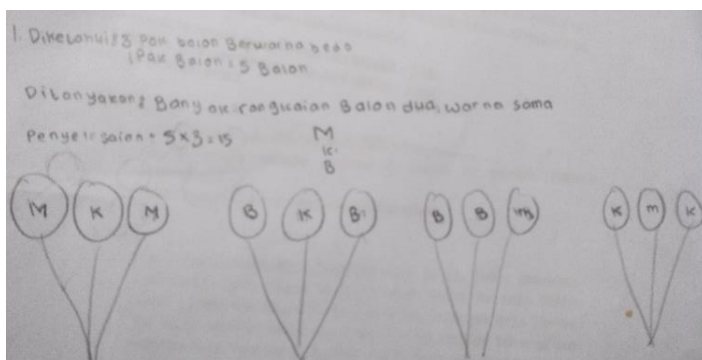 1. Diketahui : 3 Pak balon Berwarna beda
1 Pax Balon = 5 Balon
Ditanyakan : Banyak rangkaian Balon dua warna sama
Penyelesaian = 5 x 3 = 15
M
K
B
M K M B K B B B m K m K